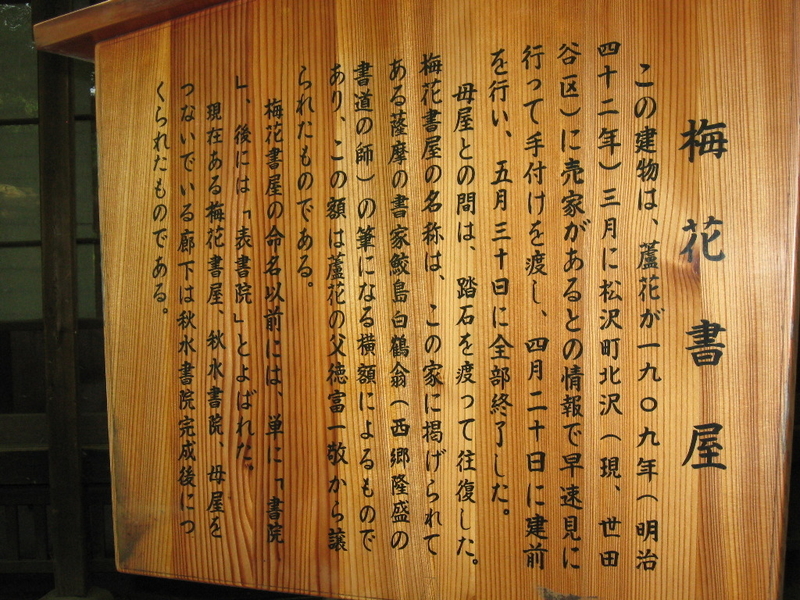 梅花書屋
この建物は、蘆花が一九〇九年（明治
四十二年）三月に松沢町北沢（現、世田
谷区）に売家があるとの情報で早速見に
行って手付けを渡し、四月二十日に建前
を行い、五月三十日に全部終了した。
母屋との間は、踏石を渡って往復した。
梅花書屋の名称は、この家に掲げられて
ある薩摩の書家鮫島白鶴翁（西郷隆盛の
書道の師）の筆になる横額によるもので
あり、この額は蘆花の父徳富一敬から譲
られたものである。
梅花書屋の命名以前には、単に「書院
」、後には「表書院」とよばれた。
現在ある梅花書屋、秋水書院、母屋を
つないでいる廊下は秋水書院完成後につ
くられたものである。